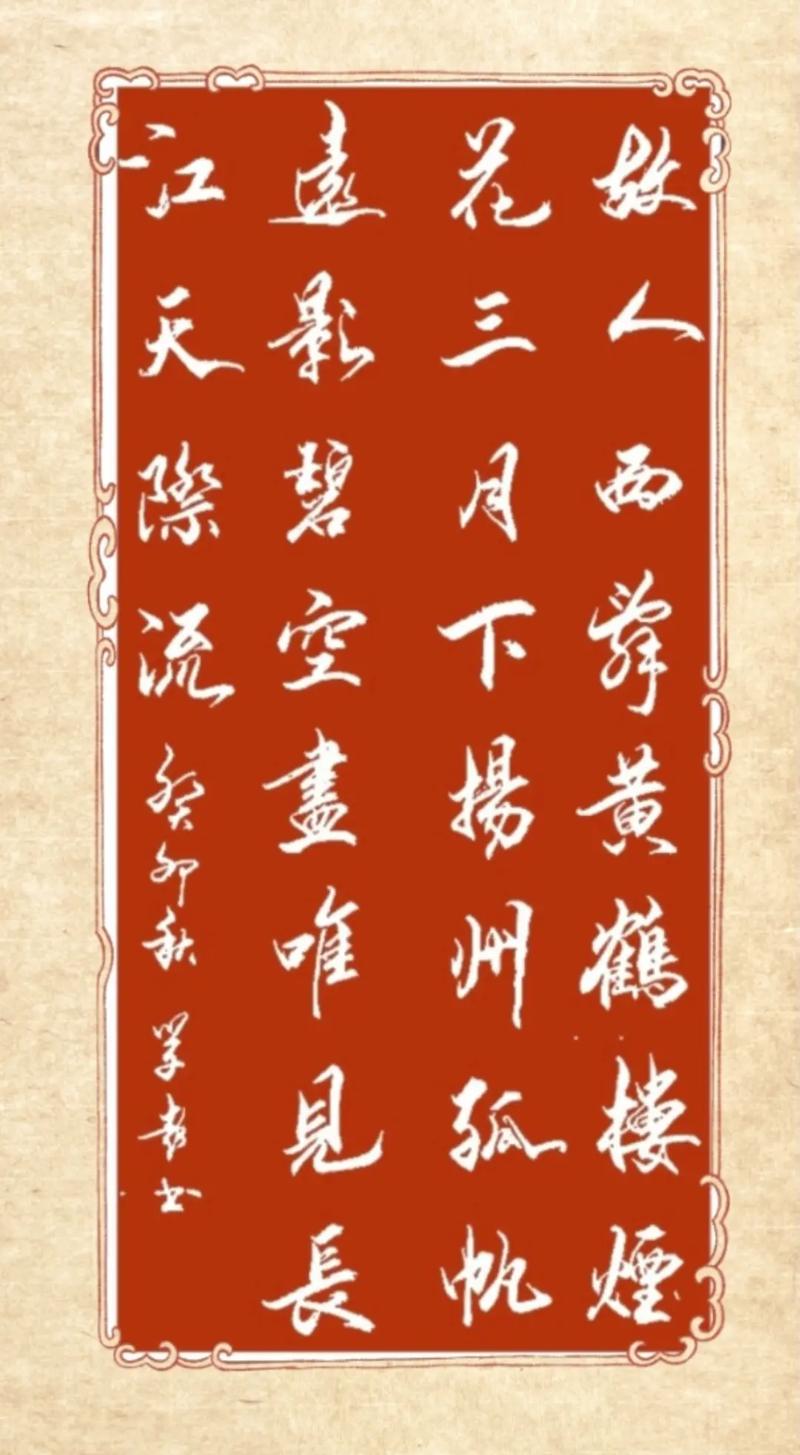 故人西辞黄鶴樓煙
花三月下揚州孤帆
遠影碧空盡唯見長
江天際流癸卯秋學書